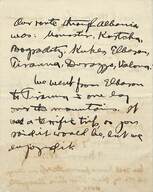 Our route through Albania
was: Monastir, Koritsha,
Pogradetz, Kukes, Elbasan,
Tiranna, Durazzo, Valona.
We went from Elbasan
to Tiranna
the mountains. It
was a terrific trip, as you
said it would be, but we
enjoyed it.